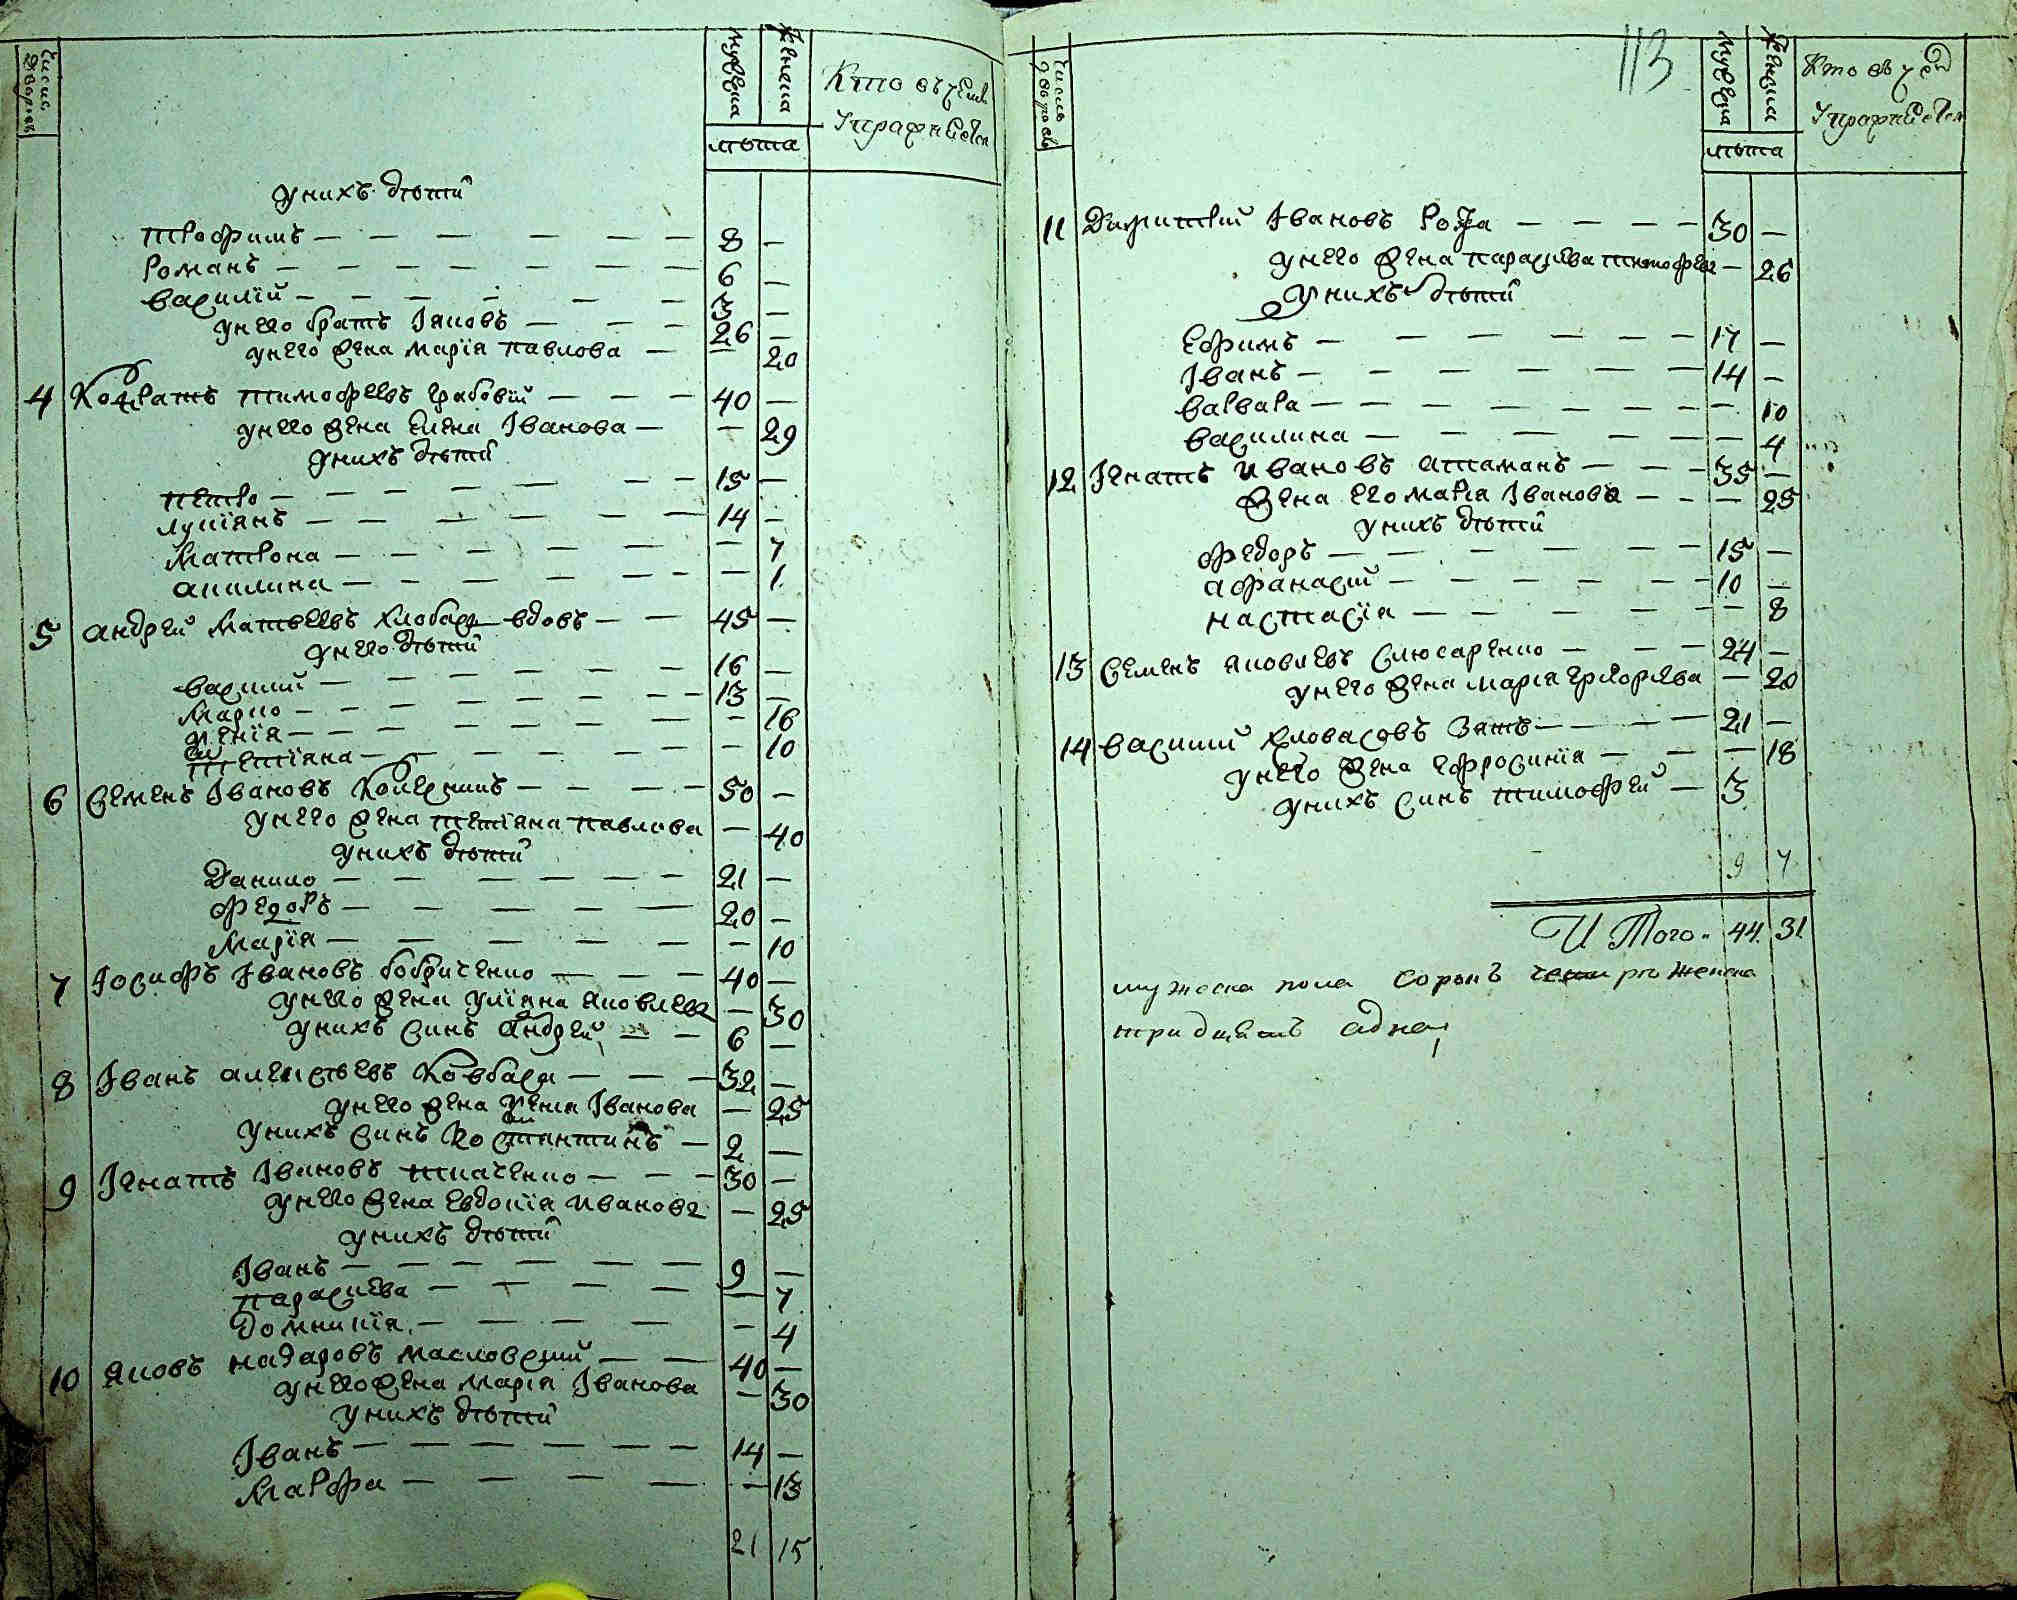 Число дворовъ
мужеска
женска
лѣта
Кто въ
у нихъ дѣти
Трофимъ — 8 —
Романъ — 6 —
Василій — 3 —
у него братъ Іяковъ — 26 —
у него жена Марія Павлова — — 20
4 Кодратъ Тимофеевъ Грабовій — 40 —
у него жена Елена Іванова — — 29
у нихъ дѣти
Петро — 15 —
Лукіянъ — 14 —
Матрона — — 7
Акилина — — 1
5 Андрей Матвеевъ вдовъ — 45 —
у него дѣти
Василий — 16 —
Марко — 13 —
Ксенія — — 16
Тетіяна — — 10
6 Семенъ Івановъ — 50 —
у него жена Тетіяна Павлова — — 40
у нихъ дѣти
Данило — 21 —
Федоръ — 20 —
Марія — — 10
7 Іосифъ Івановъ Бобриченко — 40 —
у него жена Уліяна Яковлева — 30
у нихъ синъ Андрей — 6 —
8 Іванъ Алексѣевъ Ковбаса — 32 —
у него жена Ксенія Іванова — — 25
у нихъ синъ Костантинъ — 2 —
9 Ігнатъ Івановъ Ткаченко — 30 —
у него жена Евдокія Иванова — 25
у нихъ дѣти
Іванъ — 9 —
Параскева — — 7
Домникія — — 4
10 Яковъ Назаровъ Масловский — 40 —
у него жена Марія Іванова — 30
у нихъ дѣти
Іванъ — 14 —
Марфа — — 13
21 15
113
Число дворовъ
мужеска
женска
лѣта
Кто въ
11 Дмитрій Івановъ Рожа — 30 —
у него жена Параскева Тимофеева — 26
у нихъ дѣти
Ефимъ — 17 —
Іванъ — 14 —
Варвара — — 10
Василина — — 4
12 Ігнатъ Ивановъ Атаманъ — 35 —
жена его Марія Іванова — — 25
у нихъ дѣти
Федоръ — 15 —
Афанасий — 10 —
Настасія — — 8
13 Семенъ Яковлевъ Слюсаренко — 24 —
у него жена Марія Григорева — 20
14 Василий Зять — 21 —
у него жена Ефросинія — — 18
у нихъ синъ Тимофей — 3
9 7
И Того 44 31
мужеска пола сорокъ четыри женска
тридцать адна